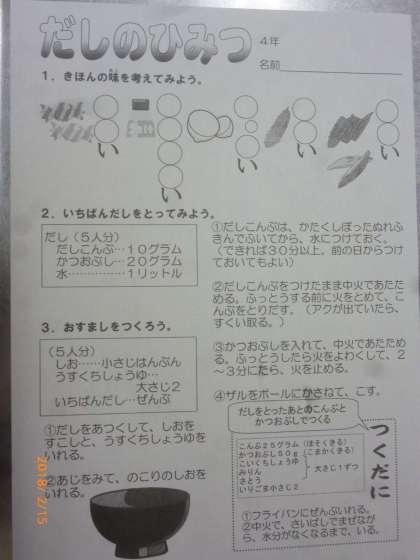 だしのひみつ
4年
名前
1．きほんの味を考えてみよう。
い
い
い
い
い
2．いちばんだしをとってみよう。
だし（5人分）
だしこんぶ…10グラム
かつおぶし…20グラム
水……………1リットル
①だしこんぶは、かたくしぼったぬれふ
きんでふいてから、水につけておく。
（できれば30分以上、前の日からつけ
ておいてもよい）
②だしこんぶをつけたまま中火であたた
める。ふっとうする前に火をとめて、こ
んぶをとりだす。（アクが出ていたら、
すくい取る。）
③かつおぶしを入れて、中火であたため
る。ふっとうしたら火をよわくして、2
～3分にたら、火を止める。
④ザルをボールにかさねて、こす。
3．おすましをつくろう。
（5人分）
しお……小さじはんぶん
うすくちしょうゆ…
大さじ2
いちばんだし…ぜんぶ
①だしをあつくして、しおを
すこしと、うすくちしょうゆを
いれる。
②あじをみて、のこりのしおを
いれる。
だしをとったあとのこんぶと
かつおぶしでつくる
つくだに
こんぶ25グラム（ほそくきる）
かつおぶし50g（こまかくきる）
こいくちしょうゆ
みりん
さとう
大さじ1ずつ
いりごま小さじ2
①フライパンにぜんぶいれる。
②中火で、さいばしでまぜなが
ら、水分がなくなるまで、いる。
2018/2/15